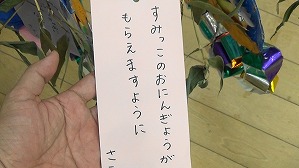 すみっこのおにんぎょうが
もらえますように
さ